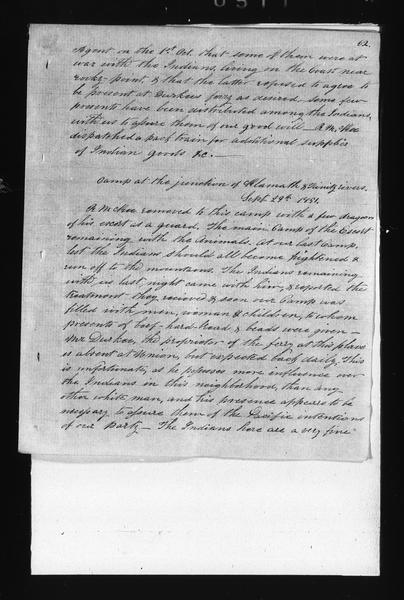 62.
Agent on the 1st Oct. that some of them were at
war with the Indians living on the Coast near
rocky point, & that the latter refused to agree to
be present at Durkees ferry as desired. Some few
presents have been distributed among the Indians,
with us to assure them of our good will. R. McKee
dispatched a pack train for additional supplies
of Indian goods &c. —
Camp at the junction of Klamath & Trinity rivers.
Sept. 29th 1851.
R. McKee removed to this camp with a few dragoons
of his escort as a guard, The main Camp of the Escort
remaining with the Animals, at our last camp,
lest the Indians should all become frightened &
run off to the mountains. The Indians remaining
with us last night came with him, & reported the
treatment they received & soon our Camp was
filled with men, women & children, to whom
presents of beef, hard-bread & beads were given —
Mr Durkee, the proprietor of the ferry at this place
is absent at Union, but expected back daily. This
is unfortunate, as he posseses more influence over
the Indians in this neighborhood, than any
other white man, and his presence appears to be
necessary to assure them of the Pacific intentions
of our party — The Indians here are a very fine